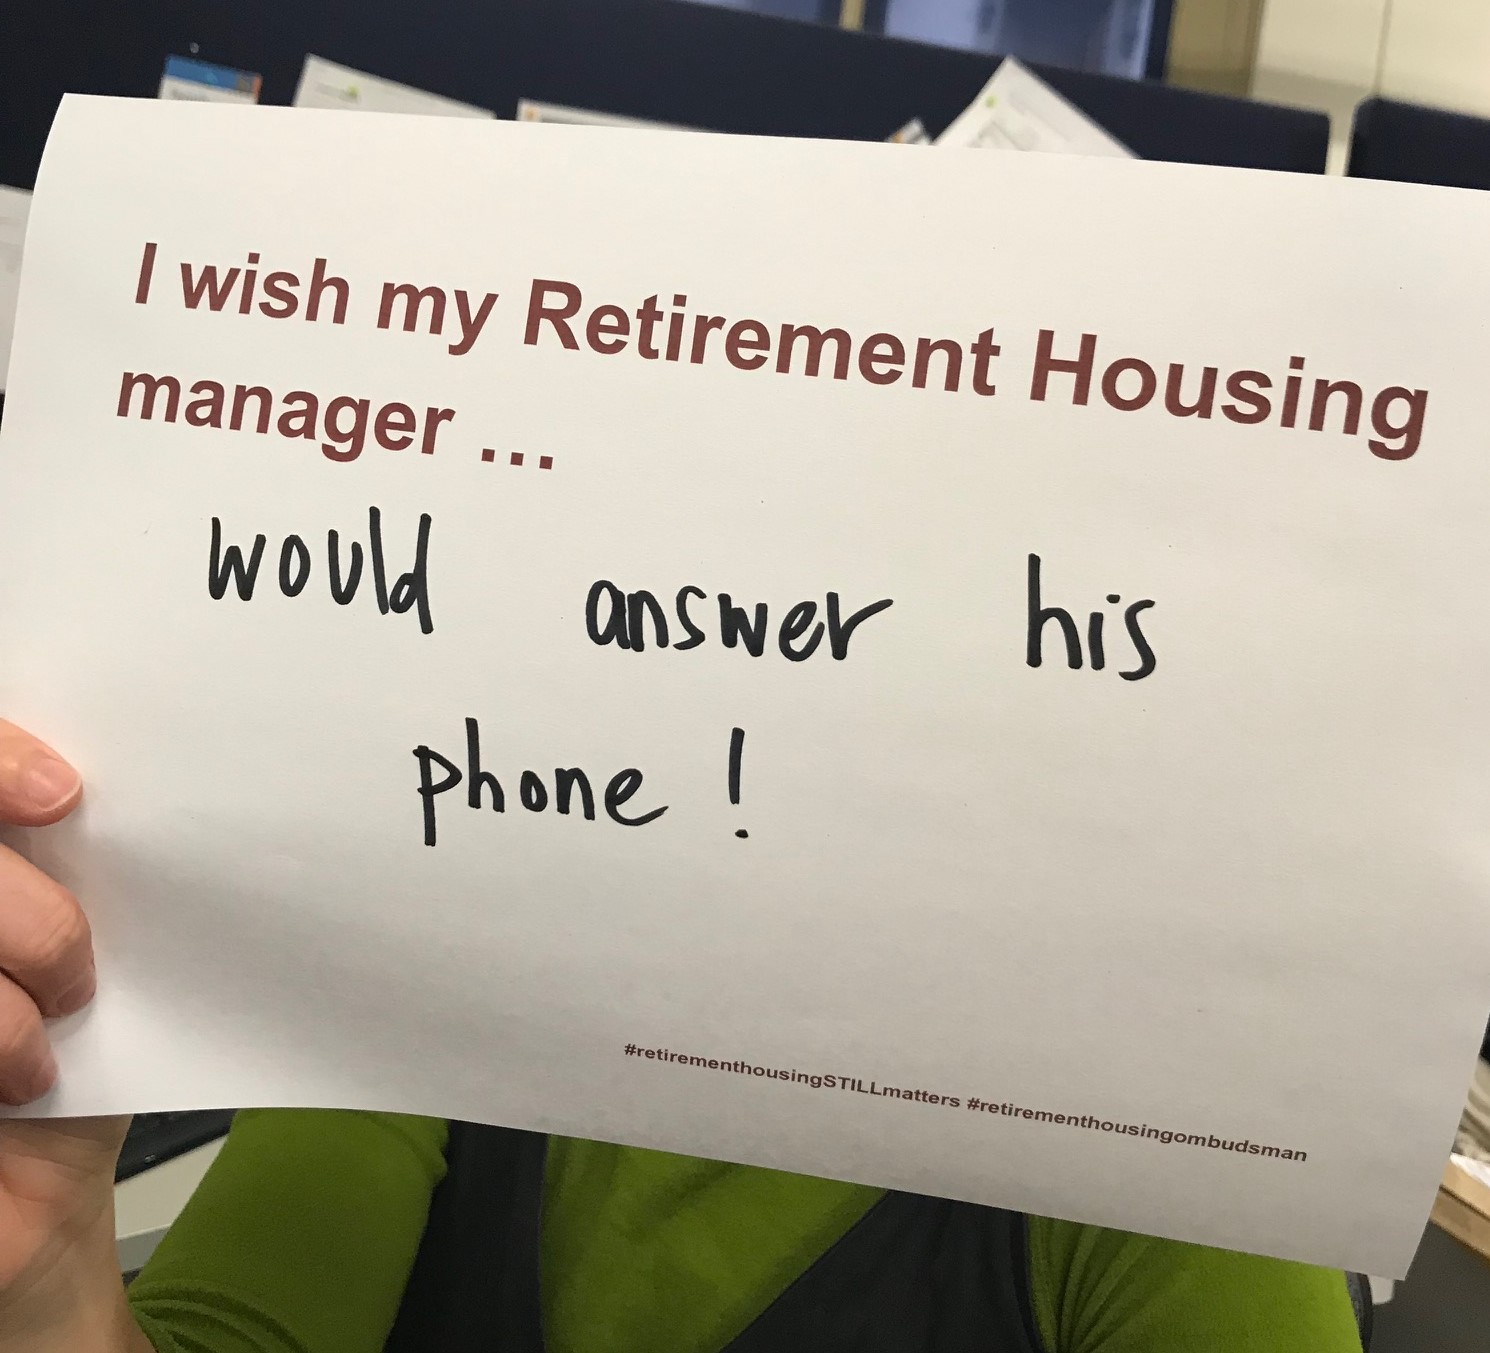 I wish my Retirement Housing
manager ...
would answer his
phone !
#retirementhousingSTILLmatters #retirementhousingombudsman